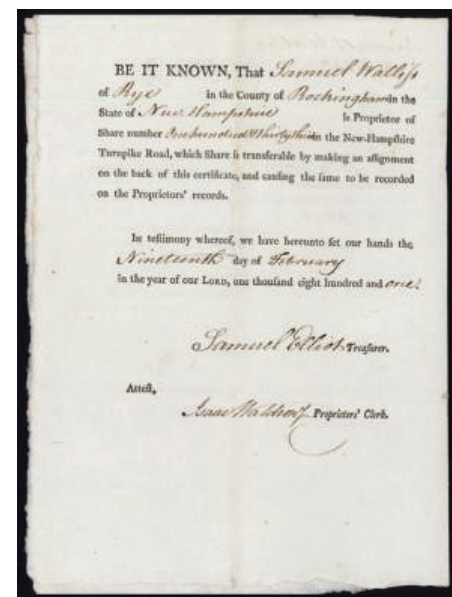 BE IT KNOWN, That Samuel Walliſs
of Rye in the County of Rockingham in the
State of New Hampshire is Proprietor of
Share number One hundred & thirty third in the New-Hampſhire
Turnpike Road, which Share is transferable by making an aſſignment
on the back of this certificate, and cauſing the ſame to be recorded
on the Proprietors' records.
In teſtimony whereof, we have hereunto ſet our hands the
Nineteenth day of February
in the year of our LORD, one thouſand eight hundred and one.
Samuel Elliot Treaſurer.
Atteſt,
Isaac Waldron Proprietors' Clerk.